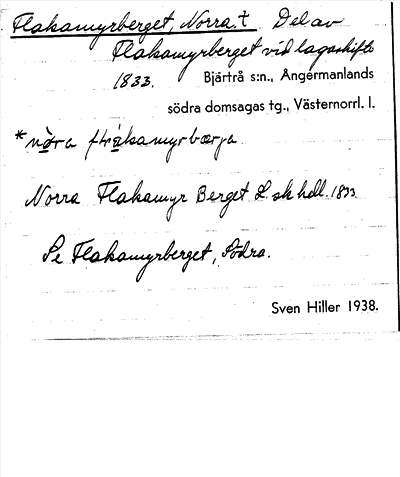 Flakamyrberget, Norra. † Del av
Flakamyrberget vid lagaskifte
1833. Bjärtrå s:n., Ångermanlands
södra domsagas tg., Västernorrl. l.
Norra Flakamyr Berget L. sk hdl. 1833.
Se Flakamyrberget, Södra.
Sven Hiller 1938.